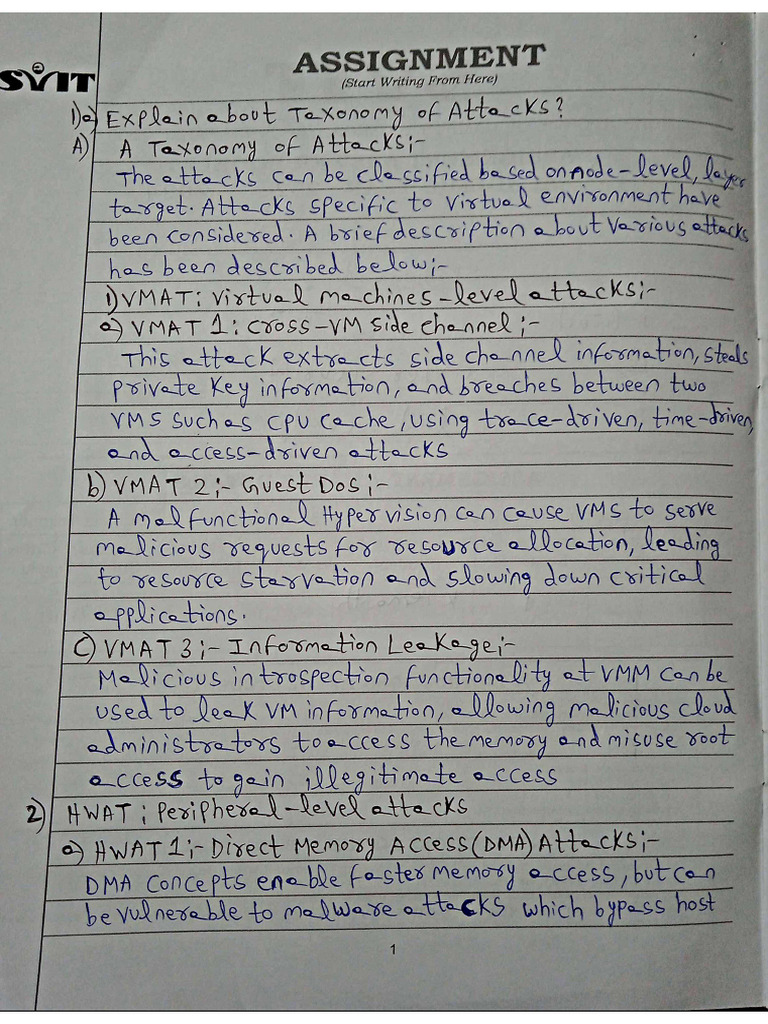 SVIT
ASSIGNMENT
(Start Writing From Here)
1)a) Explain about Taxonomy of Attacks?
A) A Taxonomy of Attacks;-
The attacks can be classified based on node-level, layer
target. Attacks specific to virtual environment have
been considered. A brief description about various attacks
has been described below;-
1) VMAT: Virtual machines-level attacks;-
a) VMAT 1: Cross-VM side channel;-
This attack extracts side channel information, steals
private key information, and breaches between two
VMS such as CPU cache, using trace-driven, time-driven,
and access-driven attacks
b) VMAT 2;- Guest Dos;-
A malfunctional Hyper vision can cause VMS to serve
malicious requests for resource allocation, leading
to resource starvation and slowing down critical
applications.
c) VMAT 3;- Information Leakage;-
Malicious introspection functionality at VMM can be
used to leak VM information, allowing malicious cloud
administrators to access the memory and misuse root
access to gain illegitimate access
2) HWAT: Peripheral-level attacks
a) HWAT 1;- Direct Memory Access(DMA) Attacks;-
DMA concepts enable faster memory access, but can
be vulnerable to malware attacks which bypass host
1